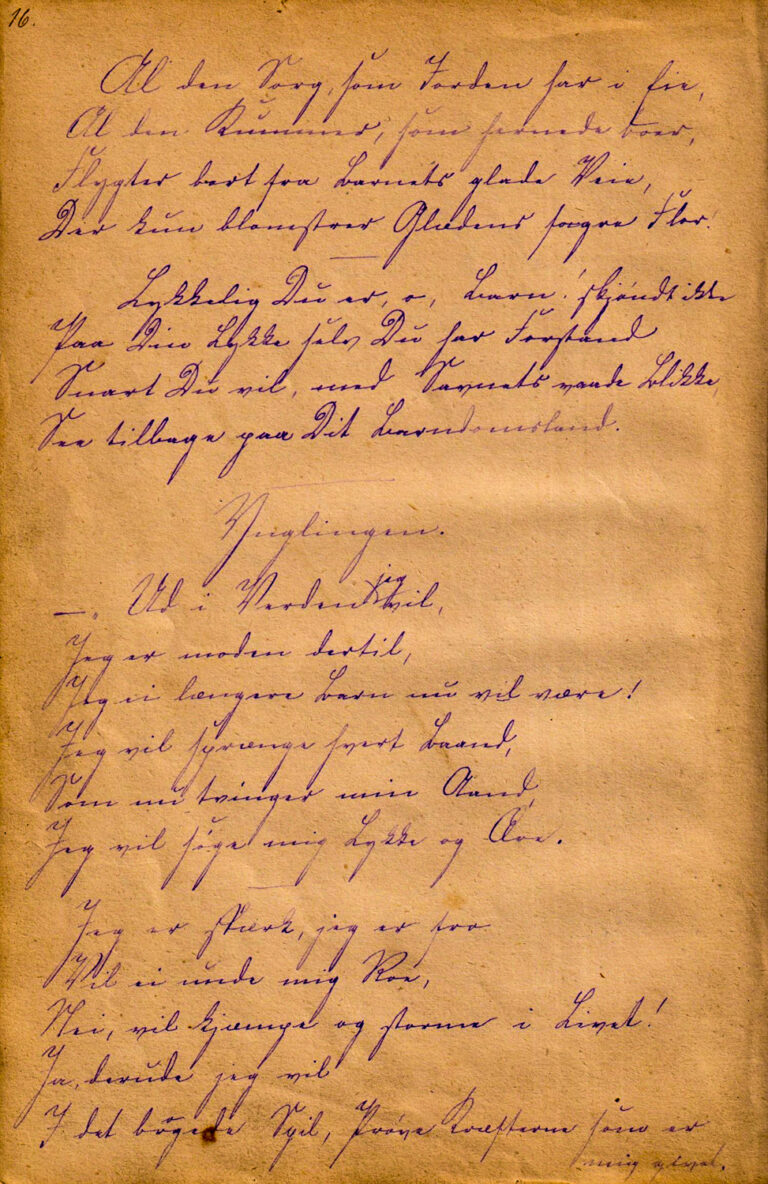 16.
Al den Sorg, som Jorden har i Eie,
Al den Kummer, som hernede boer,
Flygter bort fra Barnets glade Veie,
Der kun blomstrer Glædens fagre Flor.
Lykkelig Du er, o, Barn! skjøndt ikke
Paa Din Lykke selv Du har Forstand
Snart Du vil, med Savnets vaade Blikke,
See tilbage paa Dit Barndomsland.
Ynglingen.
—„ Ud i Verden jeg vil,
Jeg er moden dertil,
Jeg ei længere Barn nu vil være!
Jeg vil sprænge hvert Baand,
Som nu tvinger min Aand,
Jeg vil søge mig Lykke og Ære.
Jeg er stærk, jeg er fro
Vil ei unde mig Roe,
Nei, vil kjæmpe og storme i Livet!
Ja, derude jeg vil
I det Spil, Prøve Kræfterne som er
mig givet.